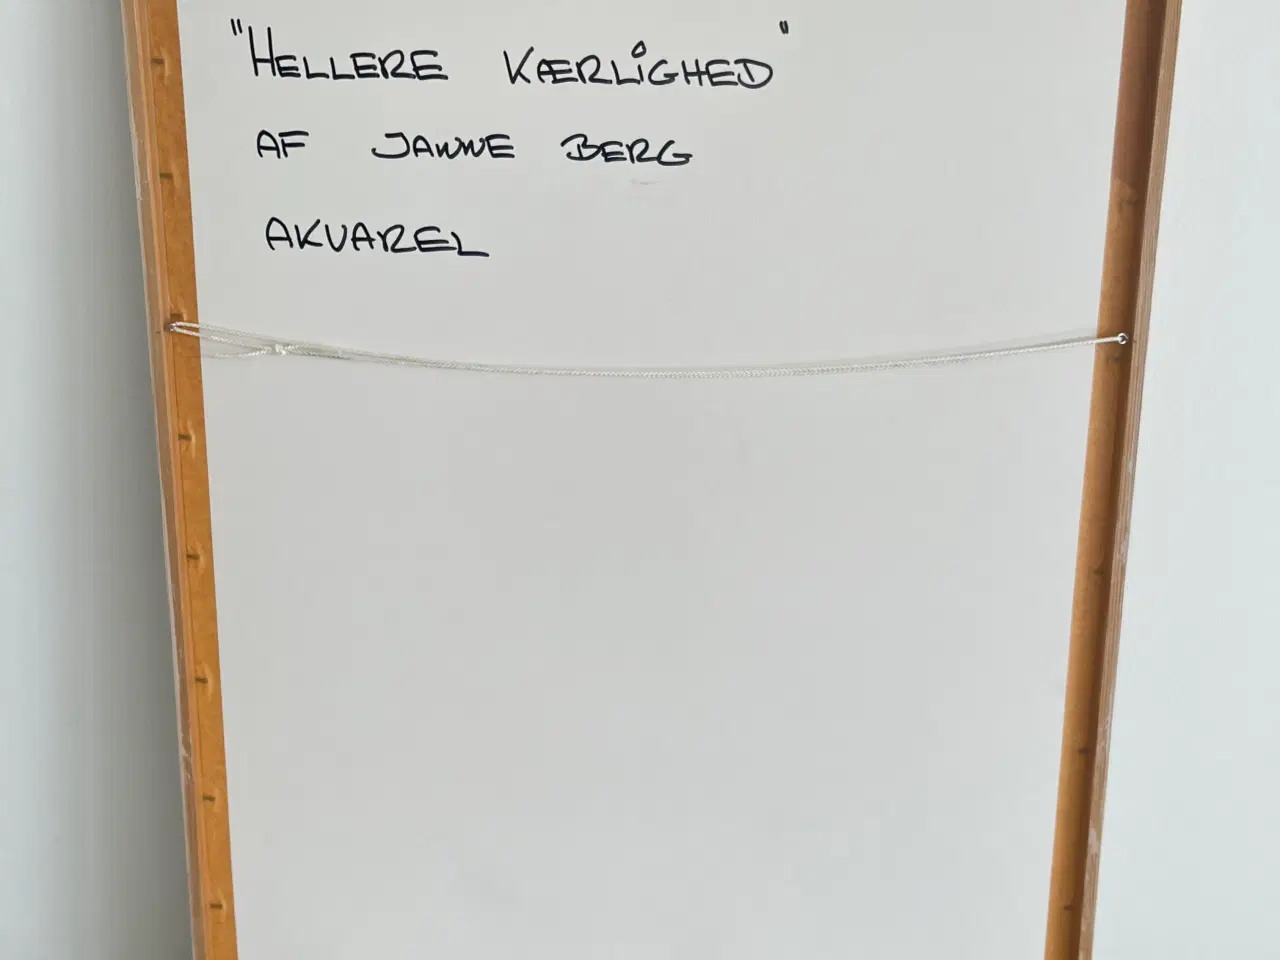 "HELLERE KÆRLIGHED"
AF JANNE BERG
AKVAREL